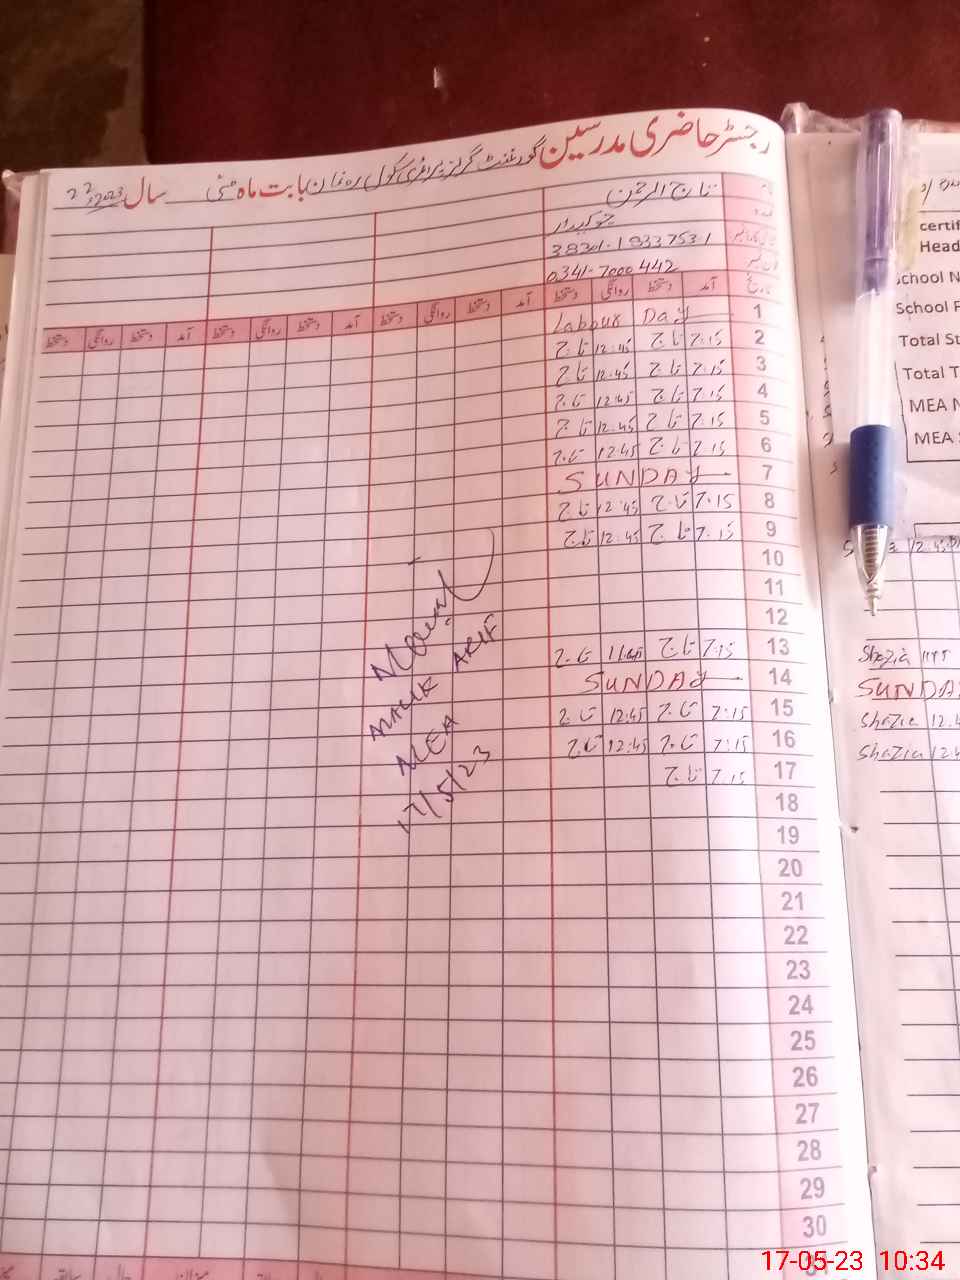 رجسٹر حاضری مدرسین گورنمنٹ گرلز پرائمری سکول بابت ماہ مئی 2023 سال
تاج الرحمٰن
چوکیدار
0341-7000442
تاریخ آمد دستخط روانگی دستخط آمد دستخط روانگی دستخط آمد دستخط روانگی دستخط
1 Labour Day
2 7:15 تاج 12:45 تاج
3 7:15 تاج 12:45 تاج
4 7:15 تاج 12:45 تاج
5 7:15 تاج 12:45 تاج
6 7:15 تاج 12:45 تاج
7 SUNDAY
8 7:15 تاج 12:45 تاج
9 7:15 تاج 12:45 تاج
10
11
12
13 7:15 تاج 11:45 تاج
14 SUNDAY
15 7:15 تاج 12:45 تاج
16 7:15 تاج 12:45 تاج
17 7:15 تاج
18
19
20
21
22
23
24
25
26
27
28
29
30
31
MALIK ARIF
MEA
17/5/23
certif
Head
School N
School F
Total St
Total T
MEA N
MEA S
12:45
Shazia 1145
SUNDA
Shazia 12:4
Shazia 12:4
17-05-23 10:34